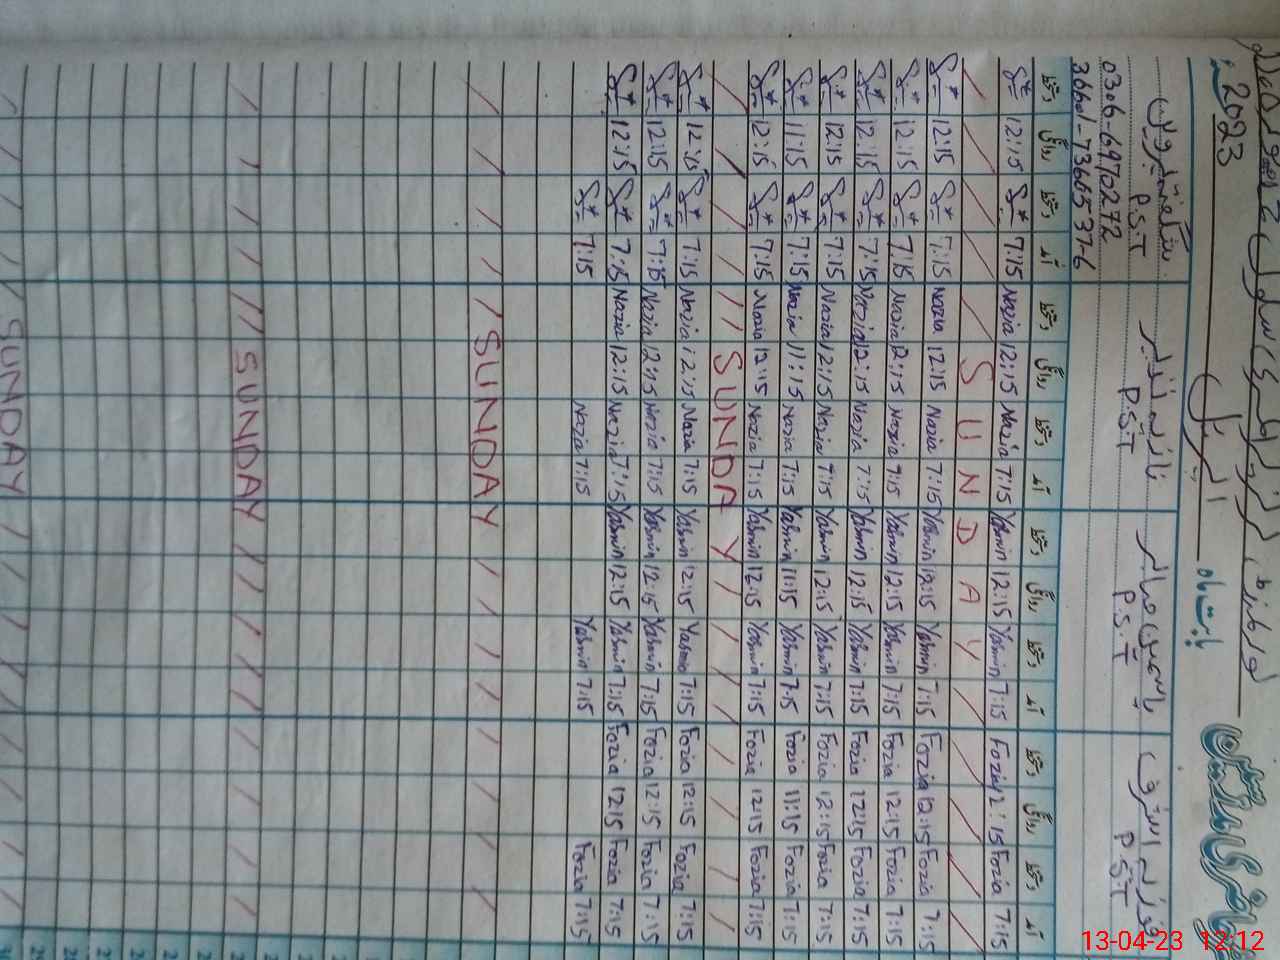 حاضری مدرسین
بابت ماہ اپریل 2023
فوزیہ اشرف یاسمین نازیہ نذیر شگفتہ پروین
P.S.T P.S.T P.S.T P.S.T
0306-6970272
36601-7366537-6
آمد دستخط روانگی دستخط آمد دستخط روانگی دستخط آمد دستخط روانگی دستخط آمد دستخط روانگی دستخط
12:15 7:15 Nazia 12:15 Nazia 7:15 Yasmin 12:15 Yasmin 7:15 Fozia 12:15 Fozia 7:15
SUNDAY
12:15 7:15 Nazia 12:15 Nazia 7:15 Yasmin 12:15 Yasmin 7:15 Fozia 12:15 Fozia 7:15
12:15 7:15 Nazia 12:15 Nazia 7:15 Yasmin 12:15 Yasmin 7:15 Fozia 12:15 Fozia 7:15
12:15 7:15 Nazia 12:15 Nazia 7:15 Yasmin 12:15 Yasmin 7:15 Fozia 12:15 Fozia 7:15
12:15 7:15 Nazia 12:15 Nazia 7:15 Yasmin 12:15 Yasmin 7:15 Fozia 12:15 Fozia 7:15
11:15 7:15 Nazia 11:15 Nazia 7:15 Yasmin 11:15 Yasmin 7:15 Fozia 11:15 Fozia 7:15
12:15 7:15 Nazia 12:15 Nazia 7:15 Yasmin 12:15 Yasmin 7:15 Fozia 12:15 Fozia 7:15
SUNDAY
12:15 7:15 Nazia 12:15 Nazia 7:15 Yasmin 12:15 Yasmin 7:15 Fozia 12:15 Fozia 7:15
12:15 7:15 Nazia 12:15 Nazia 7:15 Yasmin 12:15 Yasmin 7:15 Fozia 12:15 Fozia 7:15
12:15 7:15 Nazia 12:15 Nazia 7:15 Yasmin 12:15 Yasmin 7:15 Fozia 12:15 Fozia 7:15
7:15 Nazia 7:15 Yasmin 7:15 Fozia 7:15
SUNDAY
SUNDAY
SUNDAY
13-04-23 12:12